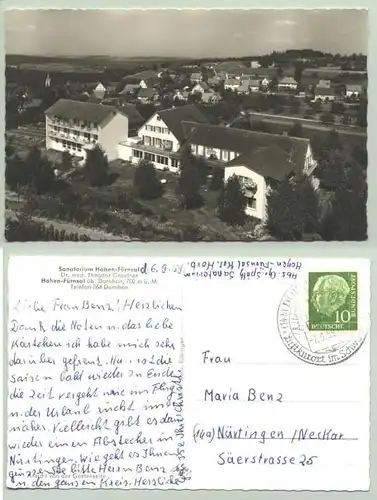 Sanatorium Hohen-Fürnsal
Dr. med. Theodor Gmelin
Hohen-Fürnsal üb. Dornhan, 700 m ü. M.
Telefon 364 Dornhan
Abs. Gr. Sanatorium
Hohen-Fürnsal Kr. Horb.
Liebe Frau Benz! Herzlichen
Dank die Noten u. das liebe
Kärtchen ich habe mich sehr
darüber gefreut. Nun ist die
Saison bald wieder zu Ende,
die Zeit vergeht wie im Flug
u. der Urlaub rückt immer
näher. Vielleicht gibt es dann
wieder einen Abstecher in
Nürtingen. Wie geht es Ihnen
grüssen Sie bitte Herrn Benz
u. den ganzen Kreis. Herzliche
Ansicht von der Gartenseite
DEUTSCHE BUNDESPOST
10
Luftkurort im Schw
Frau
Maria Benz
(14a) Nürtingen/Neckar
Säerstrasse 25